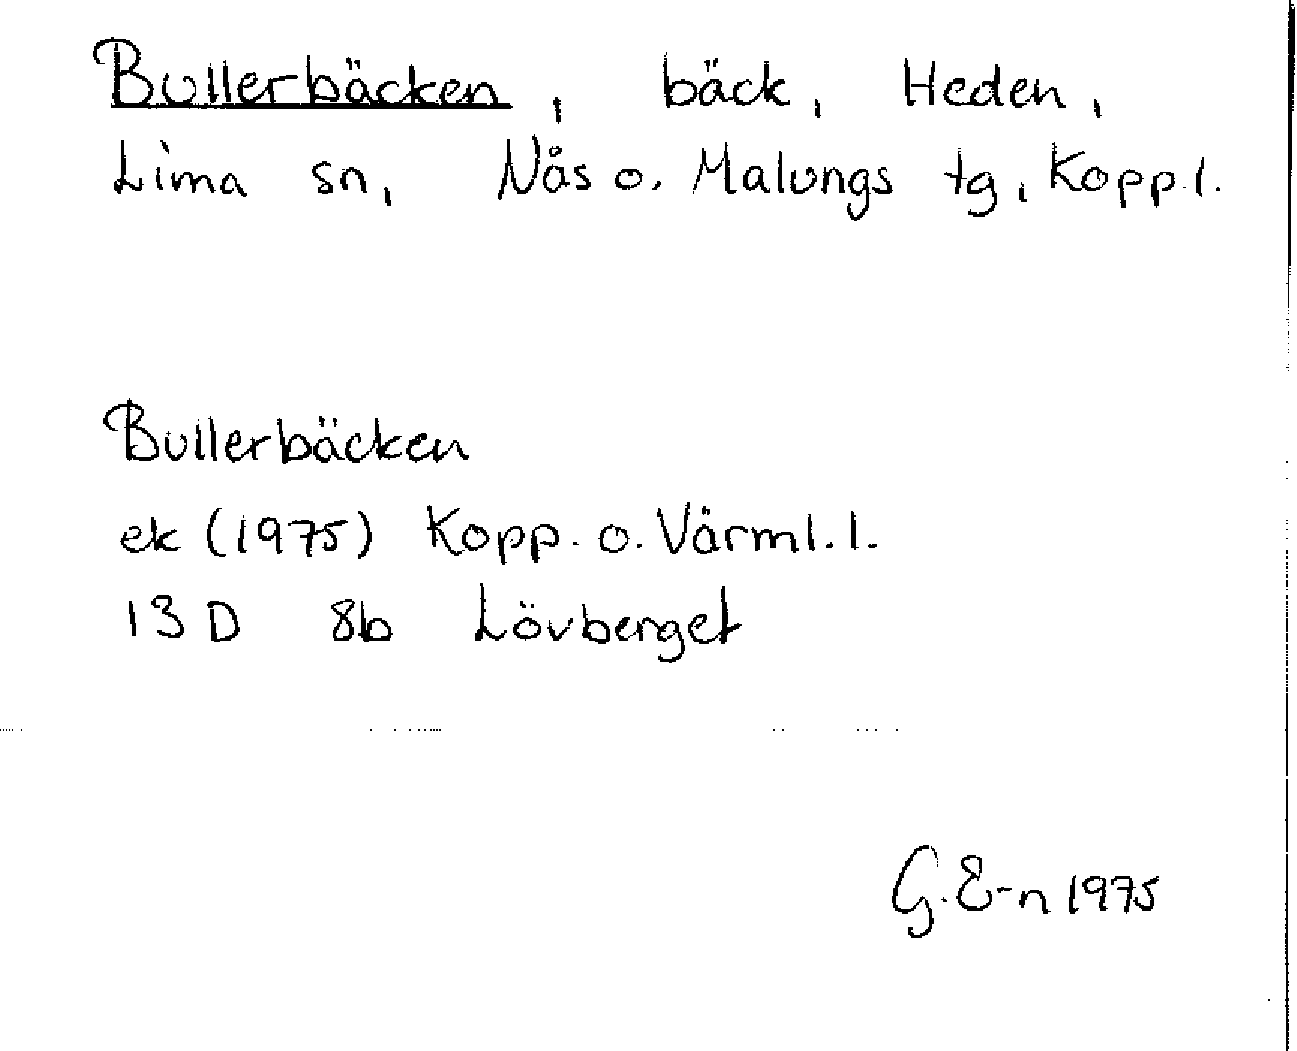 Bullerbäcken, bäck, Heden,
Lima sn, Nås o. Malungs tg, Kopp.l.
Bullerbäcken
ek (1975) Kopp. o. Värml. l.
13 D 8b Lövberget
G. E-n 1975